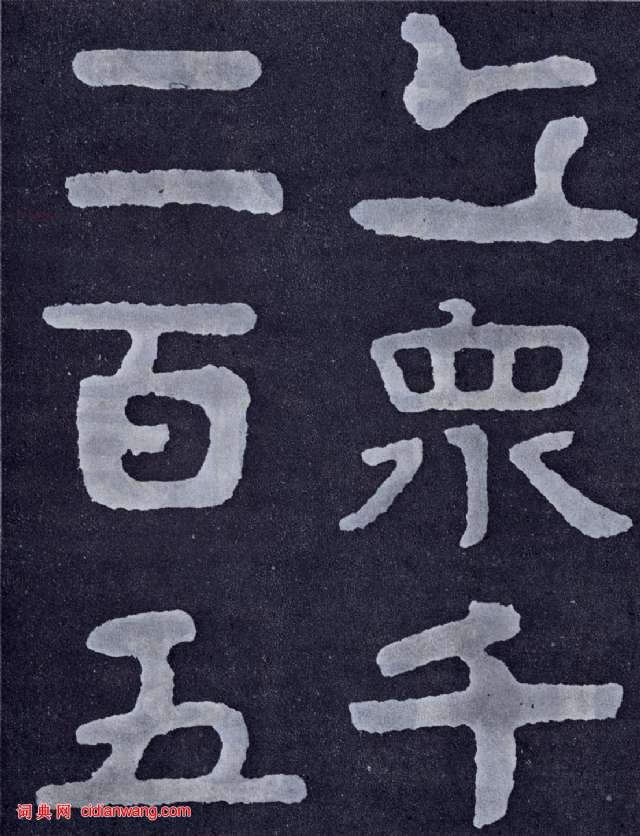 丘衆千
二百五
词典网 cidianwang.com